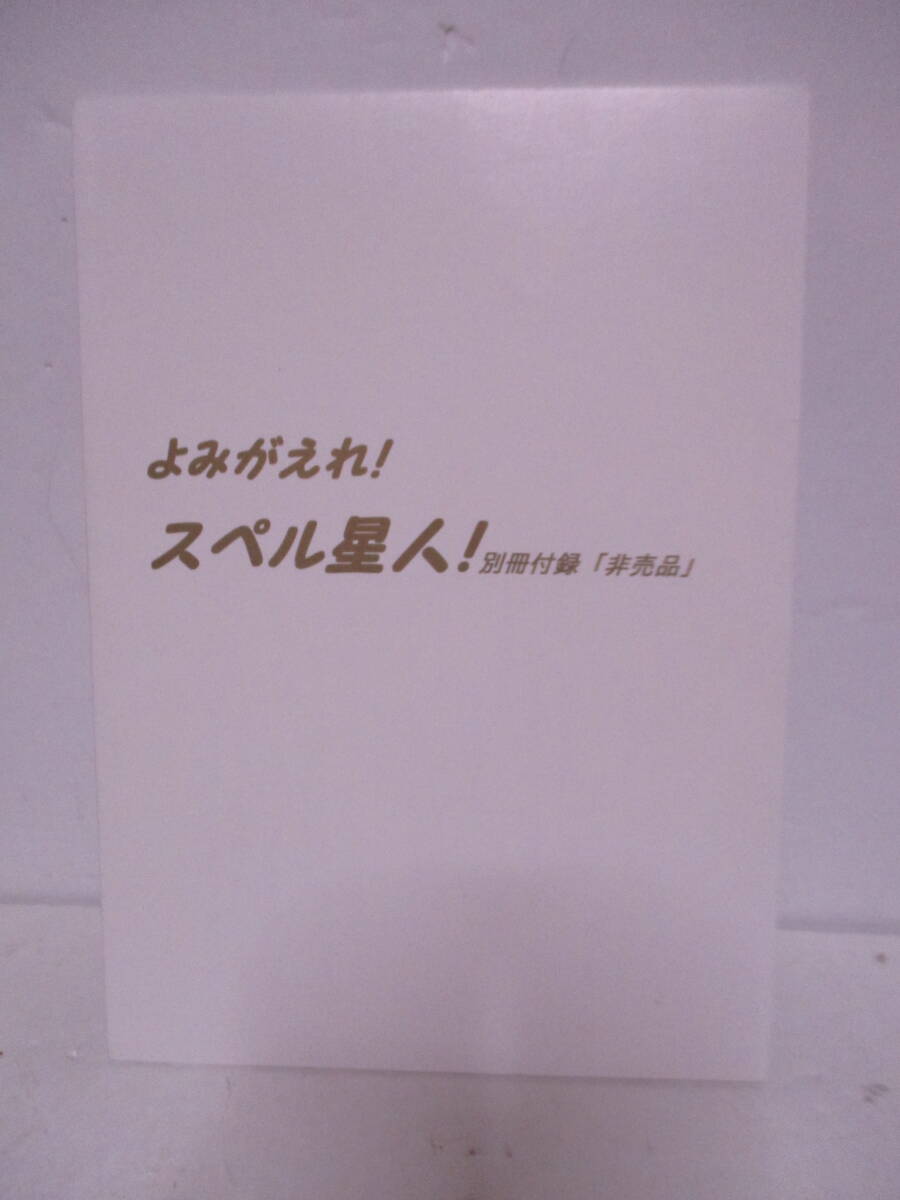 よみがえれ!
スペル星人!別冊付録「非売品」